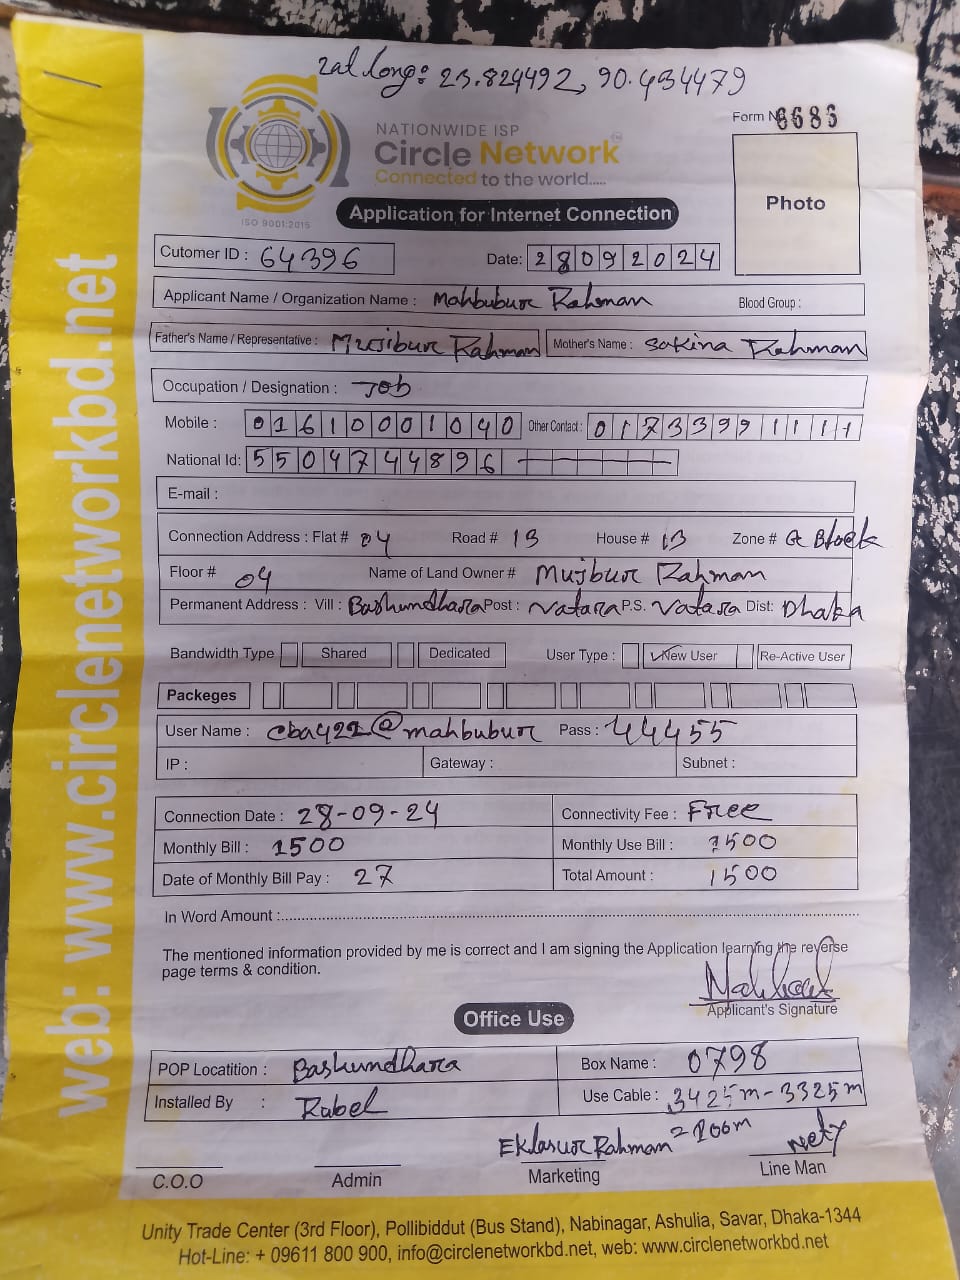 Lat Long: 23.824492, 90.434479
Form No 6686
NATIONWIDE ISP
Circle Network
Connected to the world.....
ISO 9001:2015
Photo
Application for Internet Connection
Cutomer ID : 64396 Date: 28092024
Applicant Name / Organization Name : Mahbubur Rahman Blood Group :
Father's Name / Representative : Mujibur Rahman Mother's Name : Sakina Rahman
Occupation / Designation : Job
Mobile : 01610001040 Other Contact : 01733991111
National Id: 5504744896
E-mail :
Connection Address : Flat # 04 Road # 13 House # 13 Zone # G Block
Floor # 04 Name of Land Owner # Mujbur Rahman
Permanent Address : Vill : Bashundhara Post : Vatara P.S. Vatara Dist: Dhaka
Bandwidth Type Shared Dedicated User Type : New User Re-Active User
Packeges
User Name : cba422@mahbubur Pass : 44455
IP : Gateway : Subnet :
Connection Date : 28-09-24 Connectivity Fee : Free
Monthly Bill : 1500 Monthly Use Bill : 1500
Date of Monthly Bill Pay : 27 Total Amount : 1500
In Word Amount :
The mentioned information provided by me is correct and I am signing the Application learning the reverse
page terms & condition.
Applicant's Signature
Office Use
POP Locatition : Bashundhara Box Name : 0798
Installed By : Rubel Use Cable : 3425m-3325m
Eklasur Rahman =100m
C.O.O Admin Marketing Line Man
Unity Trade Center (3rd Floor), Pollibiddut (Bus Stand), Nabinagar, Ashulia, Savar, Dhaka-1344
Hot-Line: + 09611 800 900, info@circlenetworkbd.net, web: www.circlenetworkbd.net
web: www.circlenetworkbd.net